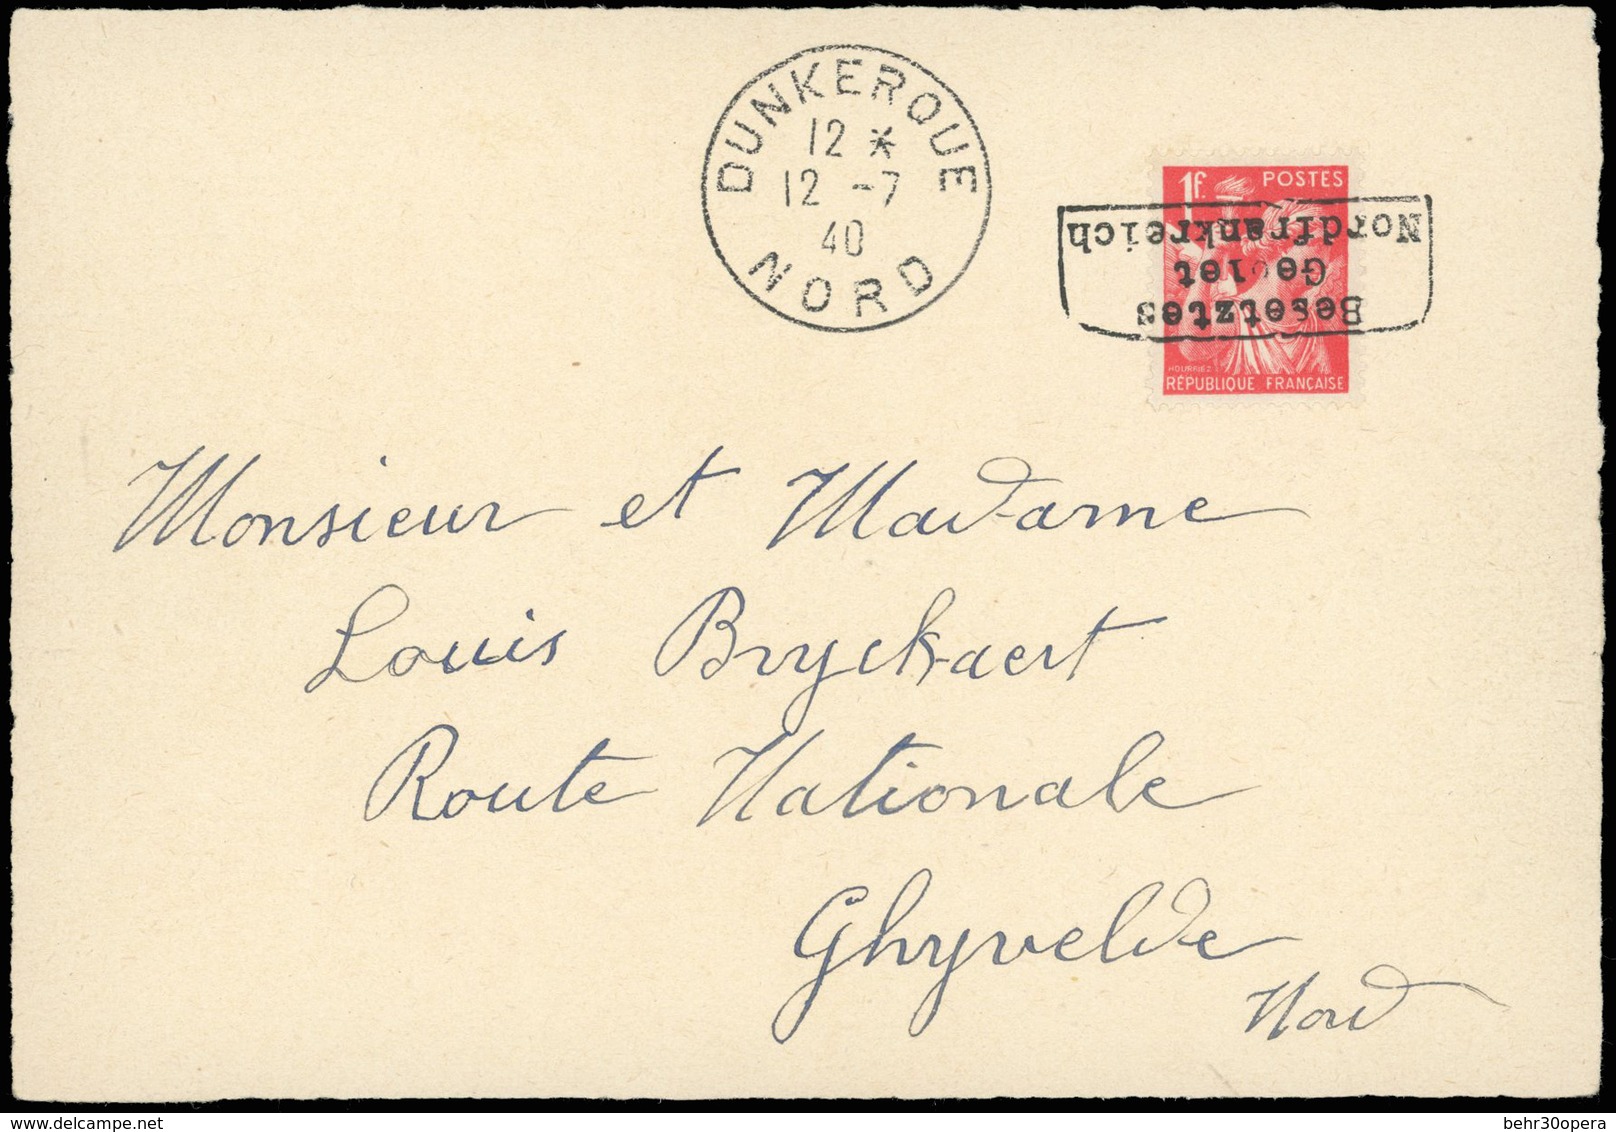 DUNKERQUE
12 *
12 -7
40
NORD
1F. POSTES
Besetztes
Gebiet
Nordfrankreich
HOURRIEZ
RÉPUBLIQUE FRANÇAISE
Monsieur et Madame
Louis Bryckaert
Route Nationale
Ghyvelde
Nord
behr30opera